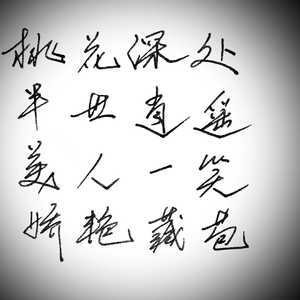 桃花深处
半世逍遥
美人一笑
娇艳藏苞